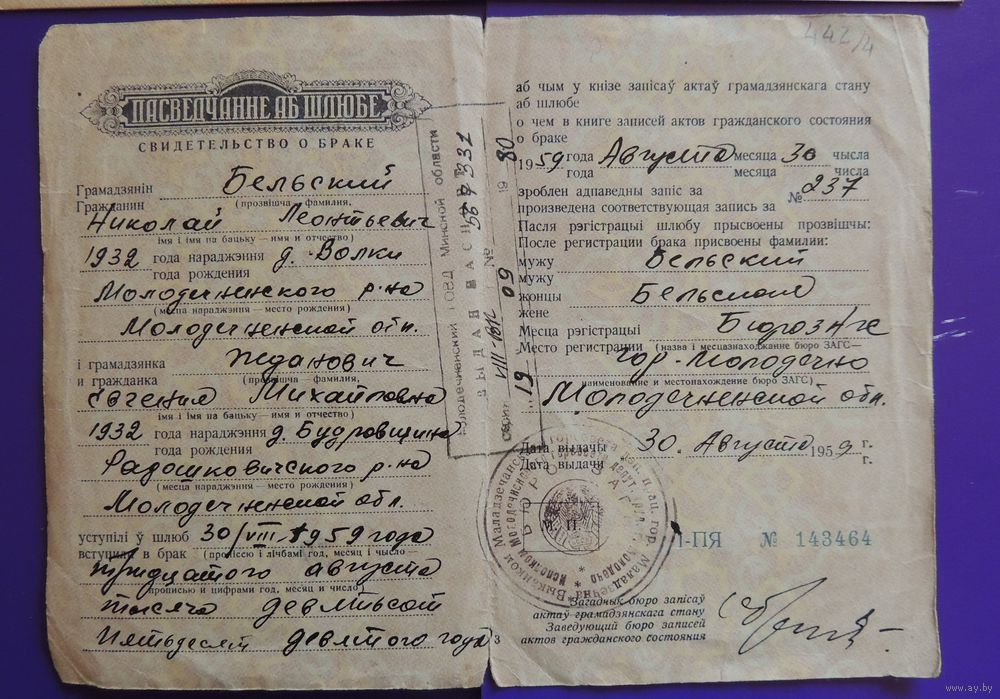 ПАСВЕДЧАННЕ АБ ШЛЮБЕ
СВИДЕТЕЛЬСТВО О БРАКЕ
Грамадзянін
Гражданин
Бельский
(прозвішча — фамилия,
Николай Леонтьевич
імя і імя па бацьку — имя и отчество)
1932 года нараджэння д. Волки
года рождения
Молодечненского р-на
(месца нараджэння — место рождения)
Молодечненской обл.
і грамадзянка
и гражданка
Жданович
(прозвішча — фамилия,
Евгения Михайловна
імя і імя па бацьку — имя и отчество)
1932 года нараджэння д. Будровщина
года рождения
Радошковичского р-на
(месца нараджэння — место рождения)
Молодечненской обл.
уступілі ў шлюб 30/VIII-1959 года
вступили в брак (пропіссю і лічбамі год, месяц і число —
тридцатого августа
прописью и цифрами год, месяц и число)
тысяча девятьсот
пятьдесят девятого года
3
442/4
аб чым у кнізе запісаў актаў грамадзянскага стану
аб шлюбе
о чем в книге записей актов гражданского состояния
о браке
1959 года Августа месяца 30 чысла
года месяца числа
зроблен адпаведны запіс за
№ 237
произведена соответствующая запись за
Пасля рэгістрацыі шлюбу прысвоены прозвішчы:
После регистрации брака присвоены фамилии:
мужу Бельский
мужу
жонцы Бельская
жене
Месца рэгістрацыі Бюро загс
Место регистрации (назва і месцазнаходжанне бюро ЗАГС—
гор. Молодечно
наименование и местонахождение бюро ЗАГС)
Молодечненской обл.
Дата выдачы 30 Августа 1959 г.
Дата выдачи г.
І-ПЯ № 143464
Загадчык бюро запісаў
актаў грамадзянскага стану
Заведующий бюро записей
актов гражданского состояния
Молодечненский ГОВД Минской области
ВЫДАН ПАСПОРТ
VIII-ВМ №
19 09 1980
БЮРО ЗАГС
www.ay.by